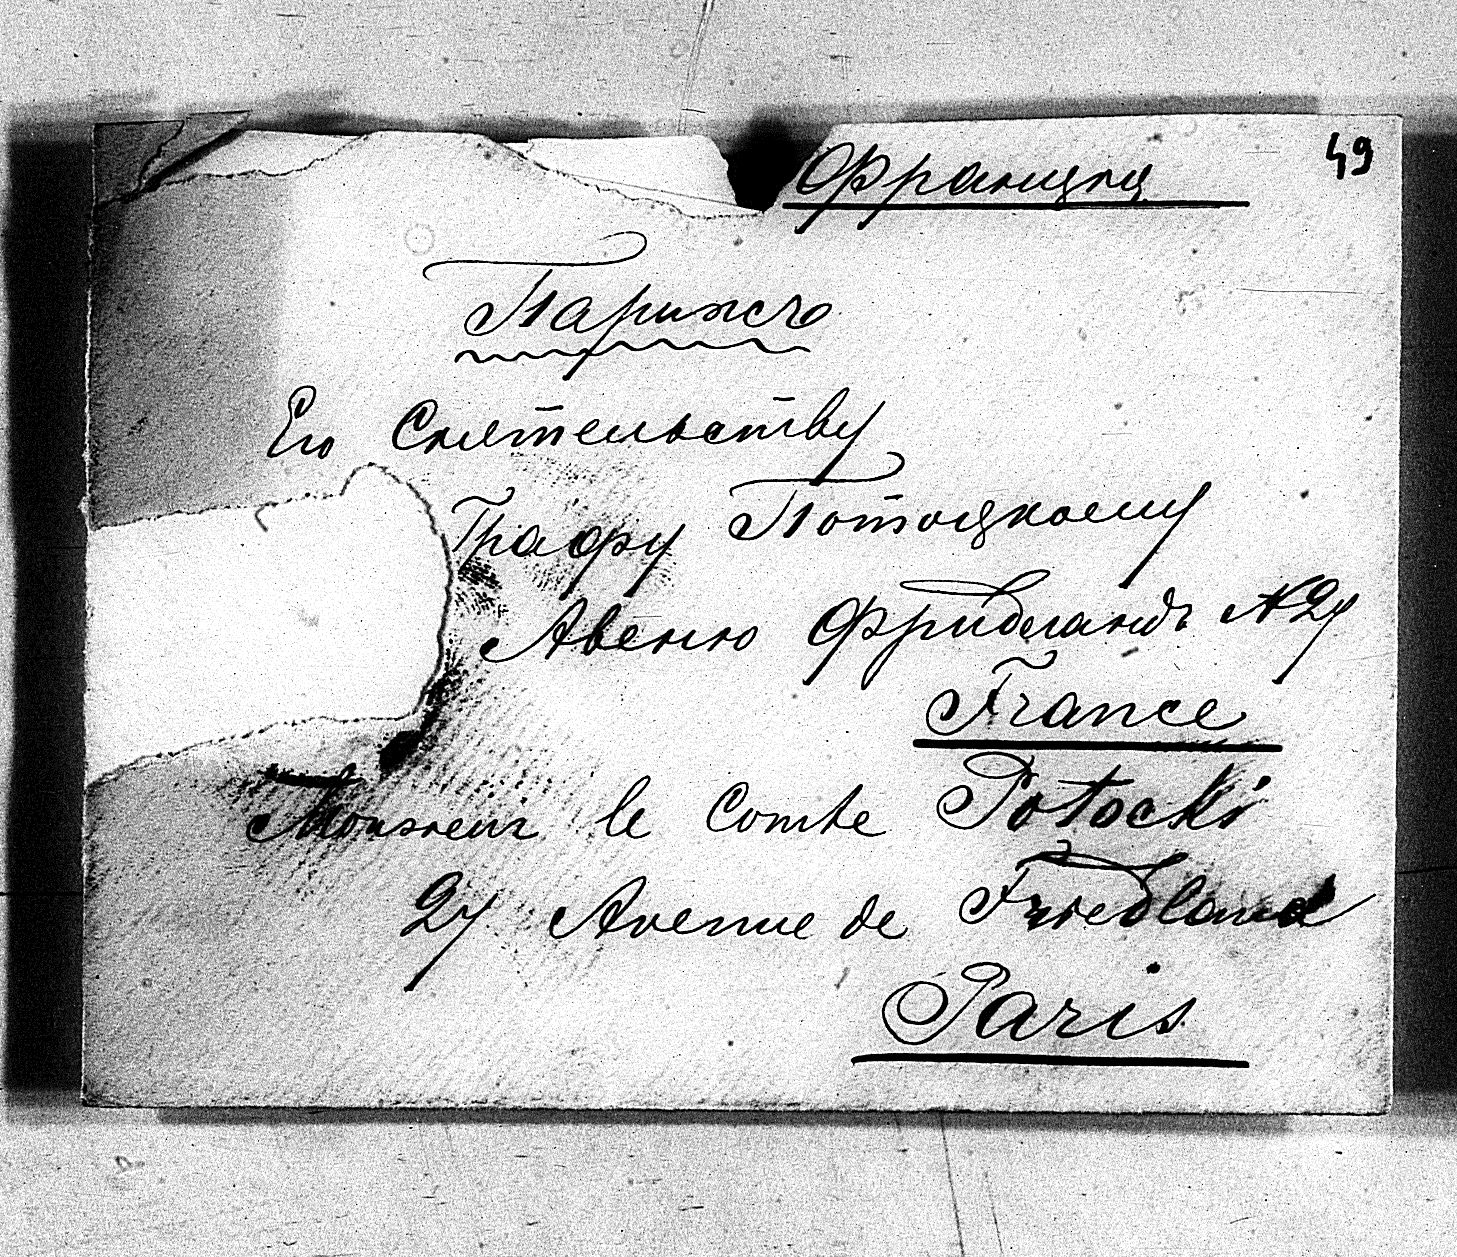 49
Франція
Парижъ
Его Сиятельству
Графу Потоцкому
Авеню Фридландъ № 27
France
Monsieur le Comte Potocki
27 Avenue de Friedland
Paris